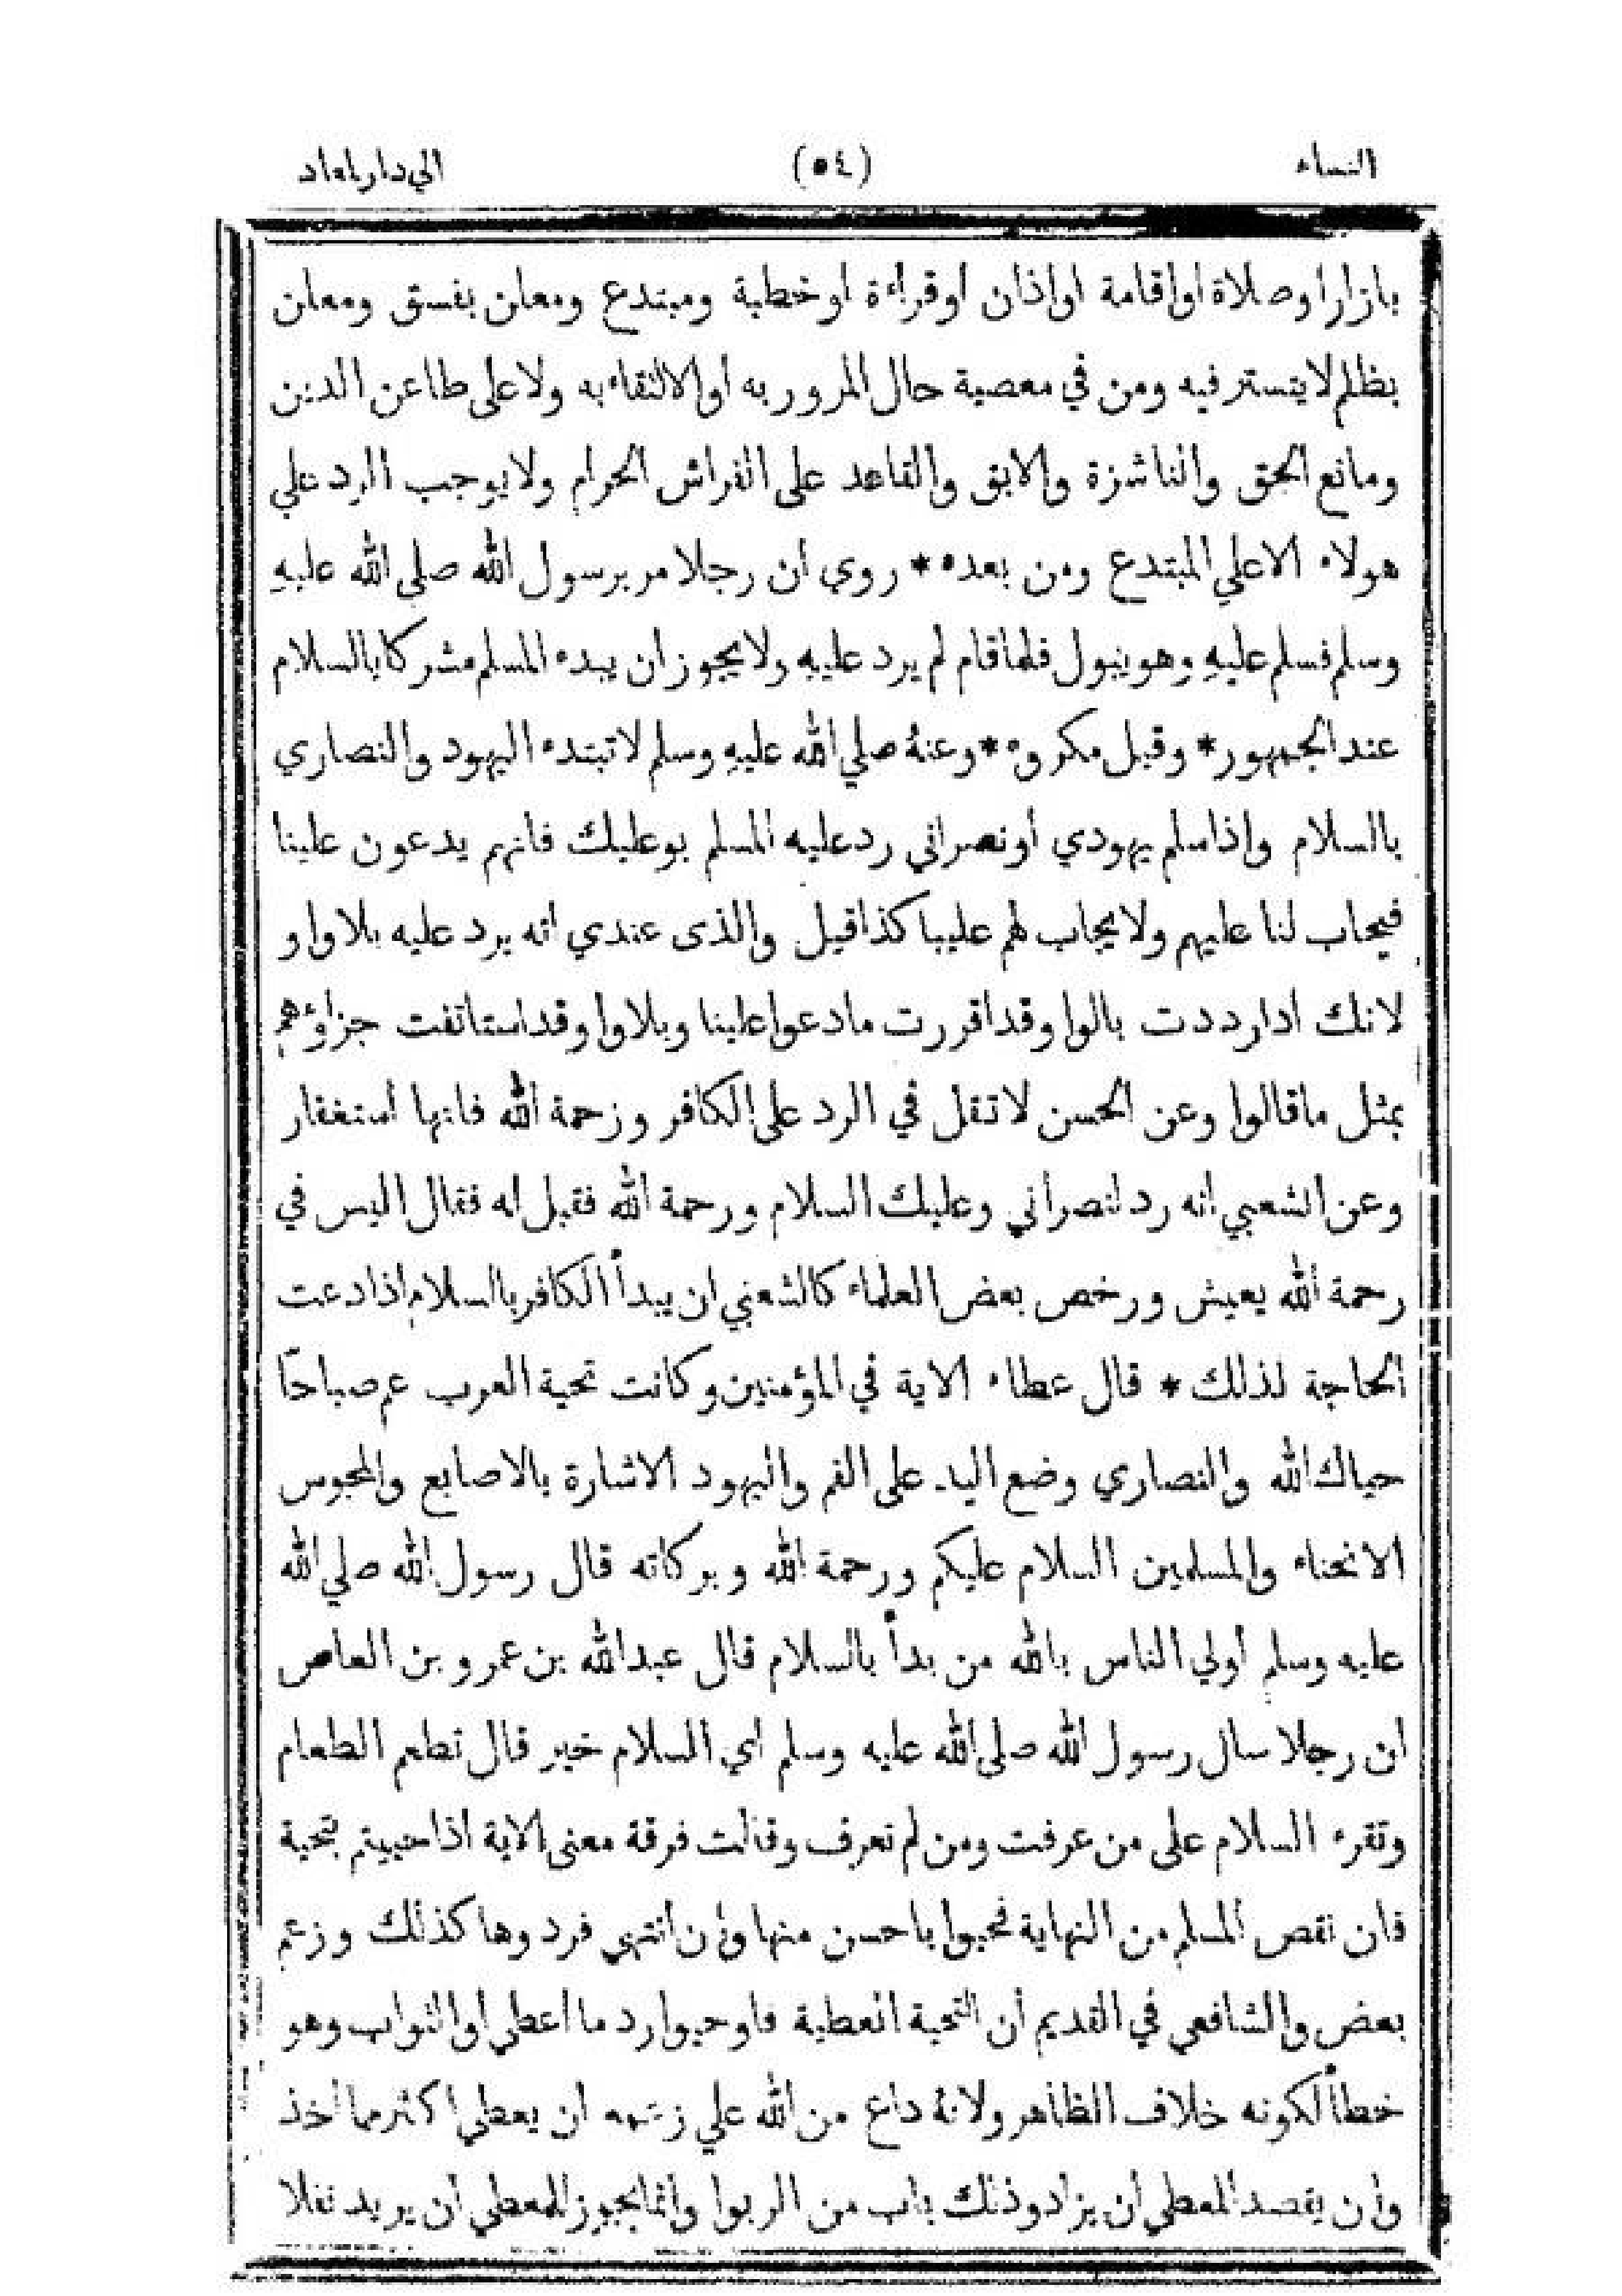 النساء (٥٤) الي دار المعاد
بازار او صلاة او اقامة او اذان او قراءة او خطبة ومبتدع ومعلن بفسق ومعلن
بظلم لا يتستر فيه ومن في معصية حال المرور به او الالتقاء به ولا على طاعن الدين
ومانع الحق والناشزة والابق والقاعد على الفراش الحرام ولا يوجب الرد علي
هولاء الا علي المبتدع ومن بعده * روي ان رجلا مر برسول الله صلى الله عليهِ
وسلم فسلم عليهِ وهو يبول فلما قام لم يرد عليهِ ولا يجوز ان يبدء المسلم مشركا بالسلام
عند الجمهور * وقيل مكروه * وعنهُ صلي الله عليهِ وسلم لا تبتدء اليهود والنصاري
بالسلام واذا سلم يهودي أو نصراني رد عليه المسلم بوعليك فانهم يدعون علينا
فيجاب لنا عليهم ولا يجاب لهم علينا كذا قيل والذى عندي انه يرد عليه بلا واو
لانك اذا رددت بالواو قد اقررت ما دعوا علينا وبلا واو قد استانفت جزاؤهم
بمثل ما قالوا وعن الحسن لا تقل في الرد على الكافر ورحمة الله فانها استغفار
وعن الشعبي انه رد لنصراني وعليك السلام ورحمة الله فقيل له فقال اليس في
رحمة الله يعيش ورخص بعض العلماء كالشعبي ان يبدأ الكافر بالسلام اذا دعت
الحاجة لذلك * قال عطاء الاية في المؤمنين وكانت تحية العرب عم صباحًا
حياك الله والنصاري وضع اليد على الفم واليهود الاشارة بالاصابع والمجوس
الانحناء والمسلمين السلام عليكم ورحمة الله وبركاته قال رسول الله صلي الله
عليه وسلم أولي الناس بالله من بدأ بالسلام قال عبد الله بن عمرو بن العاص
ان رجلا سال رسول الله صلى الله عليه وسلم اي السلام خير قال تطعم الطعام
وتقرء السلام على من عرفت ومن لم تعرف وقالت فرقة معنى الاية اذا حييتم بتحية
فان نقص المسلم من النهاية فحيوا باحسن منها وان انتهى فردوها كذلك وزعم
بعض والشافعى في القديم أن التحية العطية فاوحبوا رد ما اعطى أو الثواب وهو
خطأ لكونه خلاف الظاهر ولانهُ داع من الله علي زعمه ان يعطي اكثر مما أخذ
وان يقصد المعطي أن يزاد وذلك باب من الربوا وانما يجوز للمعطي أن يريد نفلا